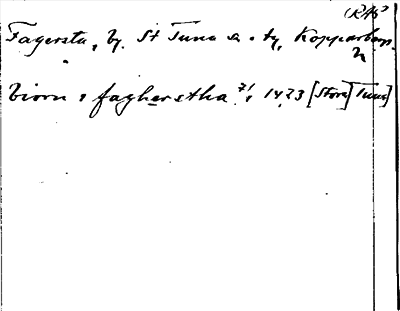 Fagersta, by. St Tuna s. o tg, Kopparbergs
biorn i fagherstha 7/1 1473 [Stora] Tuna]